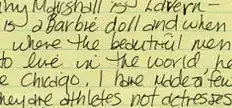 ny Marshall is Lavern -
is a Barbie doll and when
where the beautiful men
to live in the world, he
e Chicago, I have made a few
hey are athletes not actresses